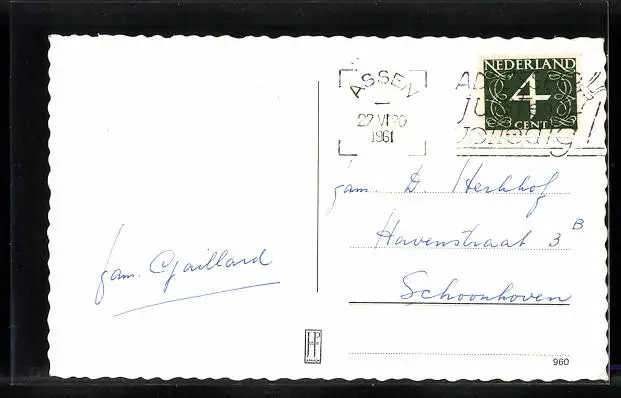 ASSEN
22 VI 20
1961
NEDERLAND
4
CENT
volledig!
fam. D. Herkhof
Havenstraat 3 B
Schoonhoven
fam. Gaillard
JP
960